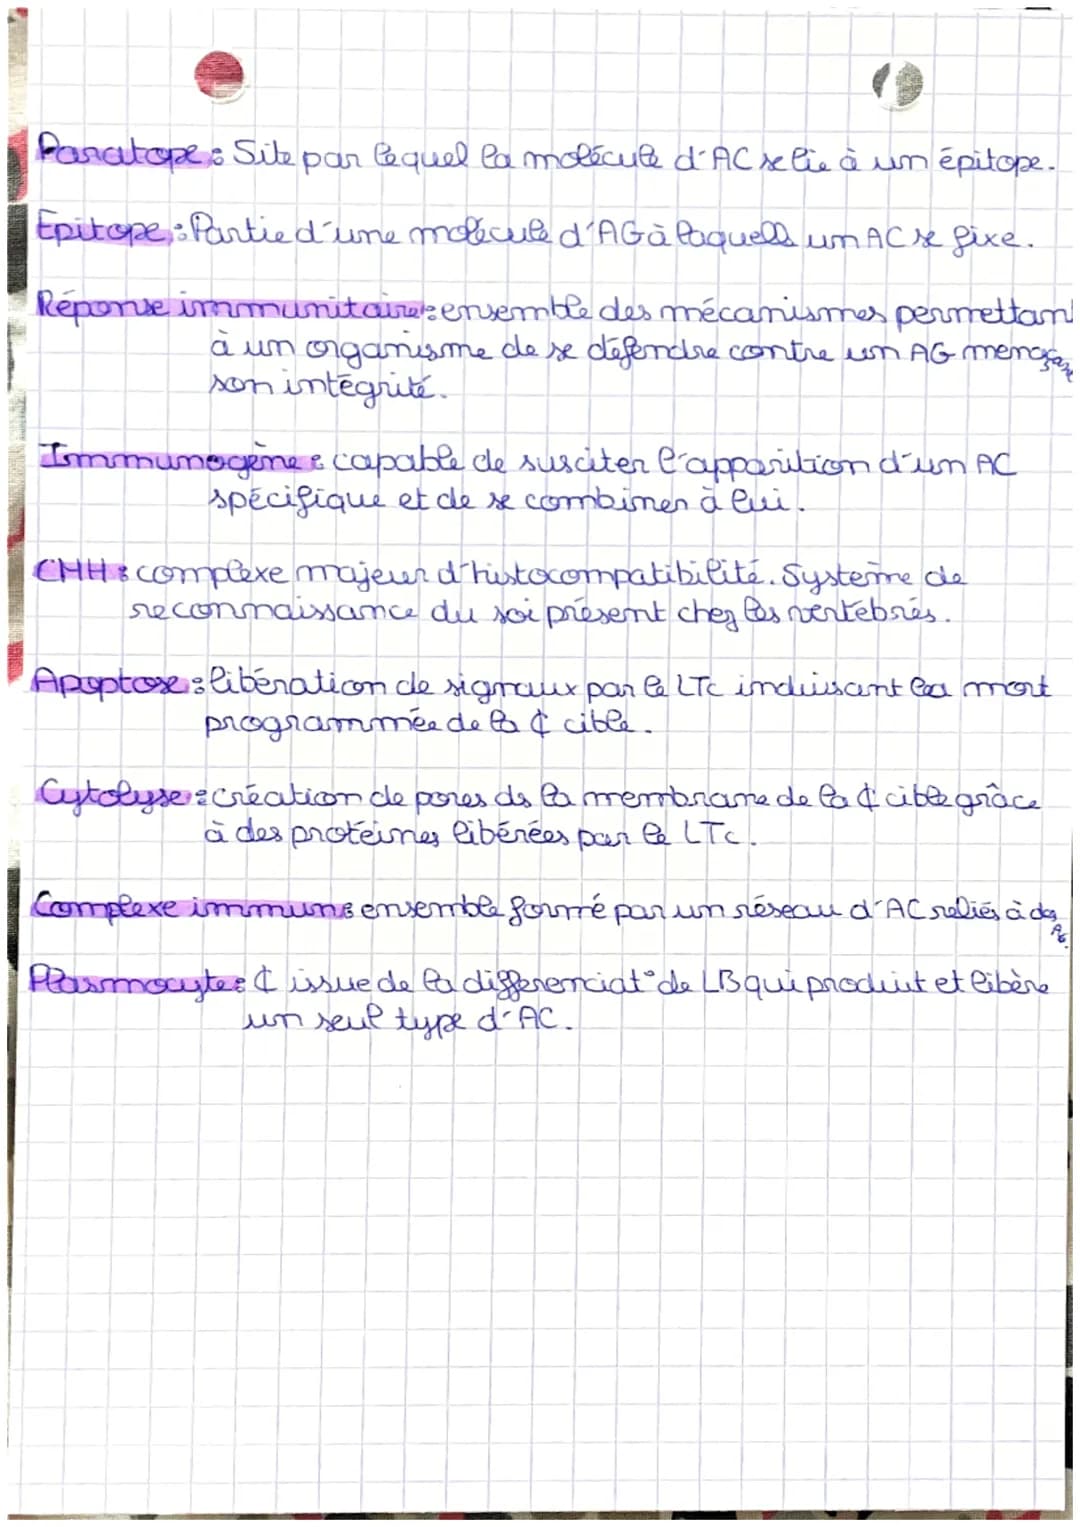 Paratope : Site par lequel la molécule d'AC se lie à un épitope.
Epitope : Partie d'une molécule d'AG à laquelle un AC se fixe.
Réponse immunitaire : ensemble des mécanismes permettant
à un organisme de se défendre contre un AG menaçant
son intégrité.
Immunogène : capable de susciter l'apparition d'un AC
spécifique et de se combiner à lui.
CMH : complexe majeur d'histocompatibilité. Système de
reconnaissance du soi présent chez les vertebrés.
Apoptose : libération de signaux par le LTc induisant la mort
programmée de la ¢ cible.
Cytolyse : création de pores ds la membrane de la ¢ cible grâce
à des protéines libérées par le LTc.
Complexe immun : ensemble formé par un réseau d'AC reliés à des
AG.
Plasmocyte : ¢ issue de la differenciat° de LB qui produit et libère
un seul type d'AC.